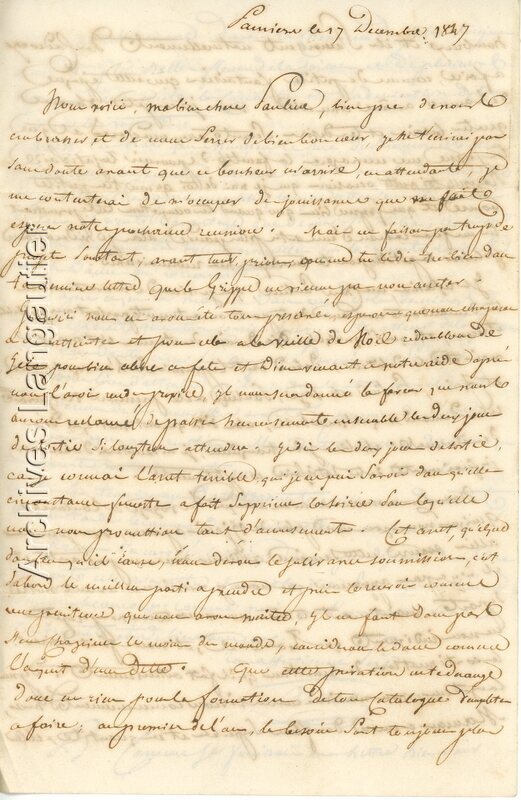 Pamiers le 17 Décembre 1847
Nous voici, ma bien chere Pauline, bien près de nous
embrasser et de nous serrer de bien bon coeur, je ne t'écrirai pas
sans doute avant que ce bonheur m'arrive, en attendant, je
me contenterai de m'occuper de jouissance que me fait
espérer notre prochaine réunion. Mais ne faisons pas trop de
projets surtout, avant tout, prions, comme tu le dis si bien dans
ta dernière lettre que la Grippe ne vienne pas nous arrêter
ici nous en avons été tous préservés, espérons que nous échapperons
et pour cela a la veille de Noël redoublons de
zèle pour bien célébrer ce fête et Dieu venant a notre aide d'après
nous l'avoir rendu propice, il nous donnera la force que nous
avons réclamé, de passer heureusement ensemble les deux jours
de sortie si longtems attendus. Je dis les deux jours de sortie,
car je connais l'arrêt terrible qui je ne puis savoir dans quelle
circonstance funeste a fait supprimer la soirée dans laquelle
nous nous promettions tant d'amusements. Cet arrêt, quelque
douleur qu'il cause, nous devons le subir avec soumission, c'est
d'abord le meilleur parti a prendre et puis le recevoir comme
une pénitence que nous avons méritée. Il ne faut donc pas
s'en chagriner le moins du monde, considérons la donc comme
l'acquit d'une dette. Que cette privation ne dérange
donc en rien pour la formation de ton Catalogue d'emplettes
a faire; au premier de l'an, les besoins sont toujours plus
Archives Langautier